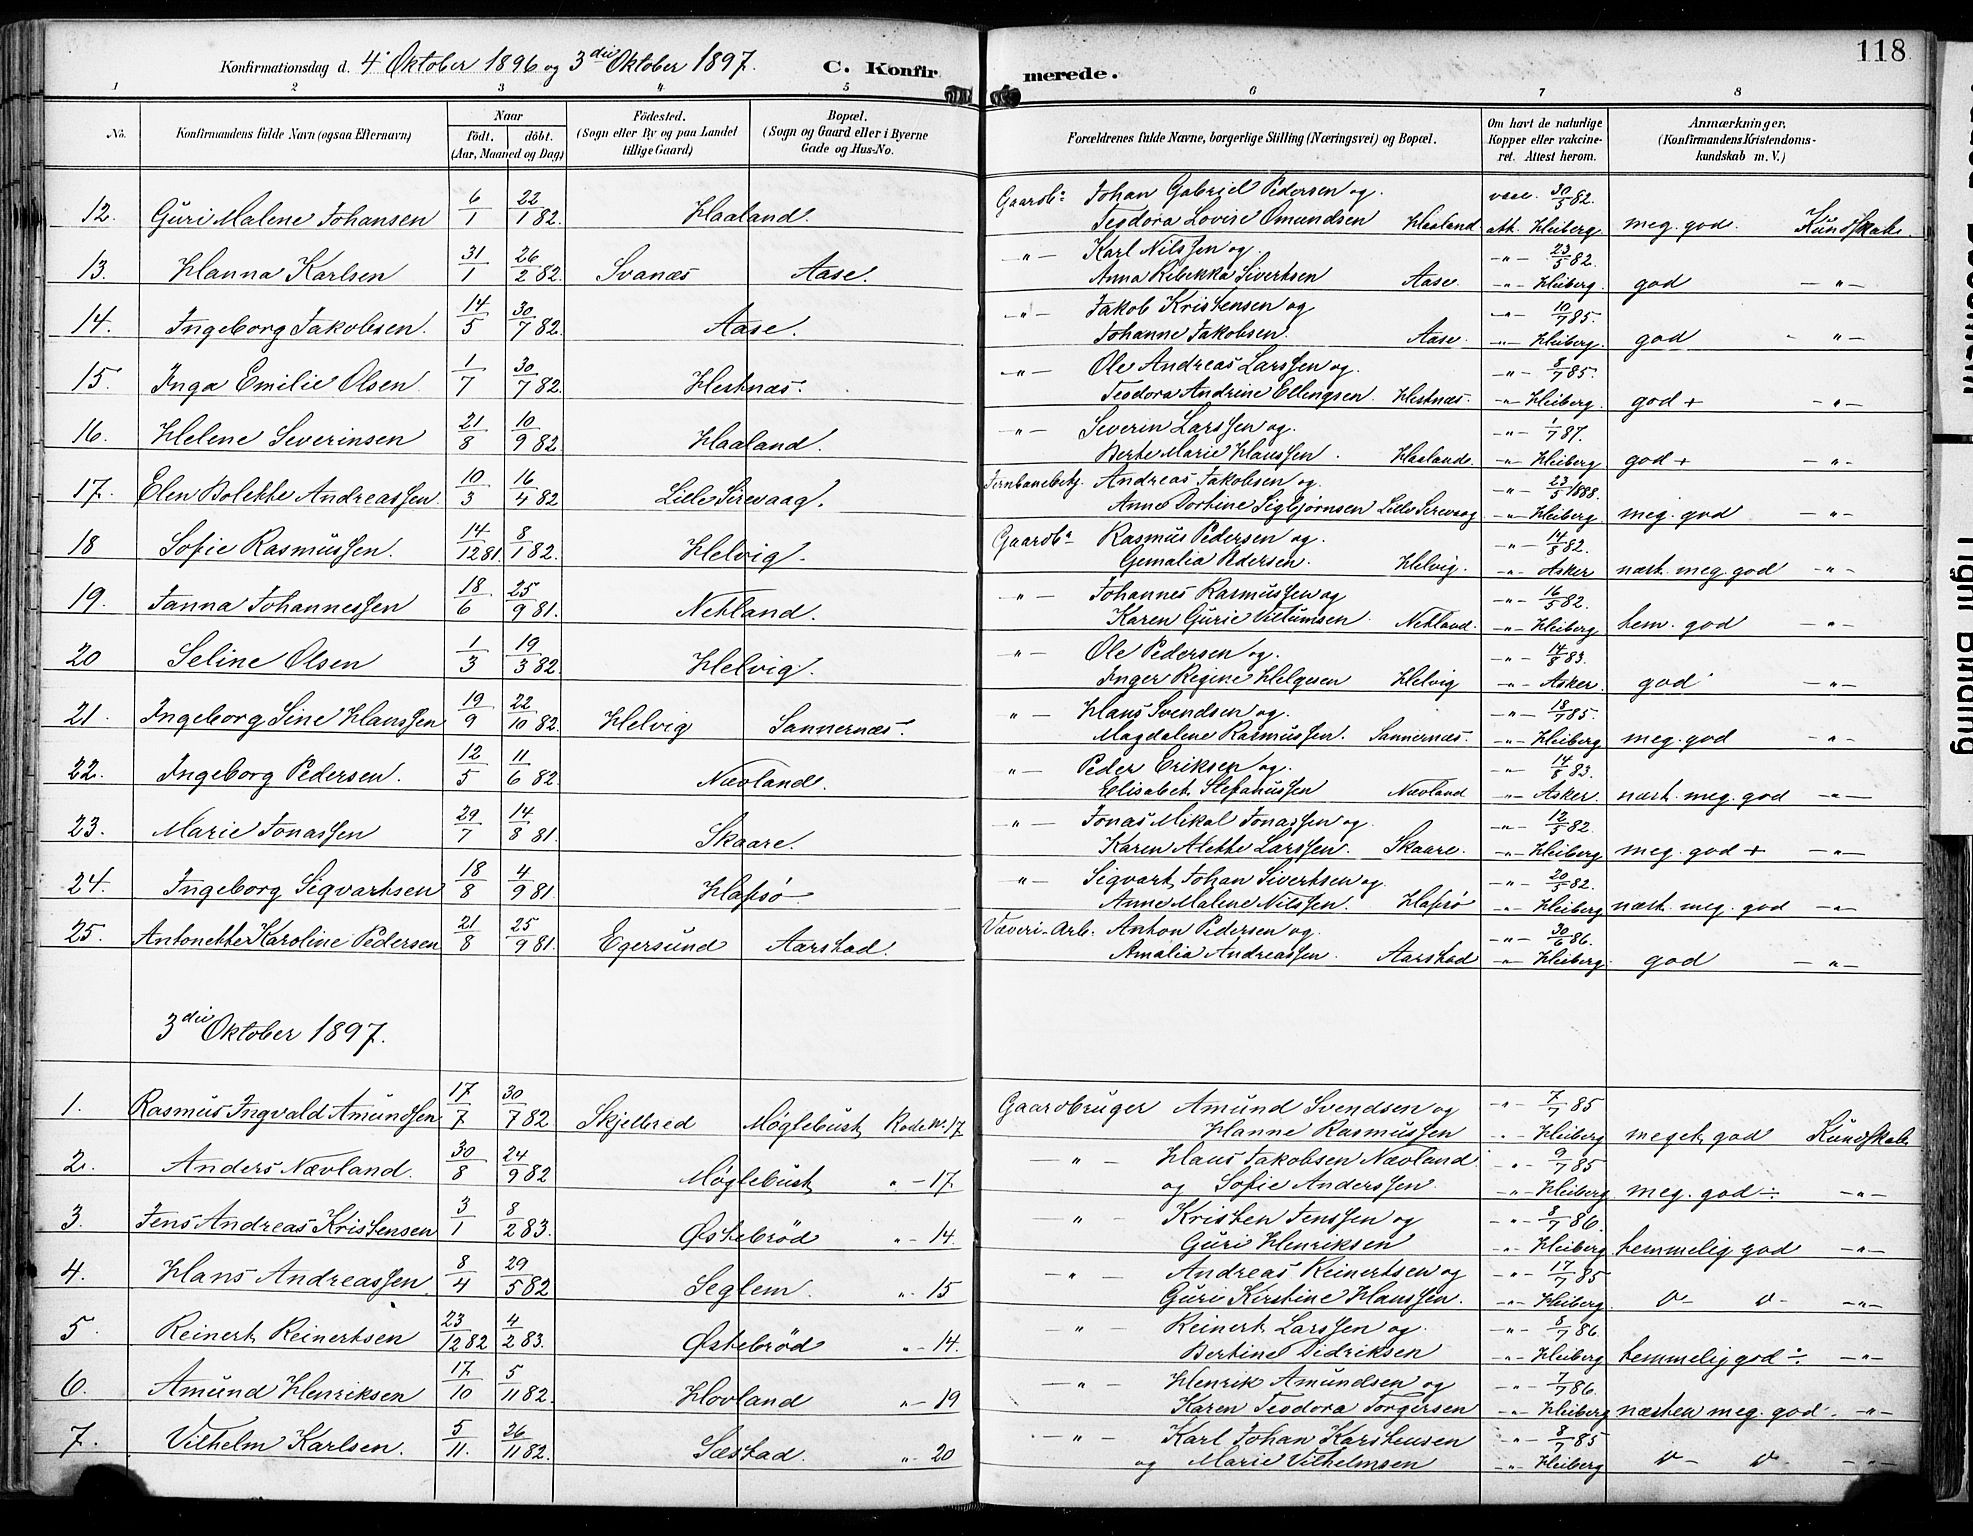 Konfirmationsdag d. 4' Oktober 1896 og 3die Oktober 1897. C. Konfirmerede. 118
1 2 3 4 5 6 7 8
No. Konfirmandens fulde Navn (ogsaa Efternavn) Naar Födt. döbt. (Aar, Maaned og Dag) Födested. (Sogn eller By og paa Landet tillige Gaard) Bopæl. (Sogn og Gaard eller i Byerne Gade og Hus-No. Forældrenes fulde Navne, borgerlige Stilling (Næringsvei) og Bopæl. Om havt de naturlige Kopper eller vakcineret. Attest herom. Anmærkninger, (Konfirmandens Kristendomskundskab m. V.)
12. Guri Malene Johansen 6/1 22/1 82. Haaland. Gaardb: Johan Gabriel Pedersen og Teodora Lovise Omundsen Haaland vacc. 30/5 82. att. Heiberg meg. god. Kundskab.
13. Hanna Karlsen 31/1 26/2 82. Svanæs Aase. -"- Karl Nilssen og Anna Rebekka Sivertsen Aase. -"- 23/5 82. -"- Heiberg. god -"-
14. Ingeborg Jakobsen. 14/5 30/7 82. Aase. -"- Jakob Kristensen og Johanne Jakobsen. Aase. -"- 10/7 85. -"- Heiberg. god -"-
15. Inga Emilie Olsen. 1/7 30/7 82. Hestnæs. -"- Ole Andreas Larssen og Teodora Andrine Ellingsen. Hestnæs. -"- 8/7 85. -"- Heiberg. god + -"-
16. Helene Severinsen 21/8 10/9 82. Haaland. -"- Severin Larssen og Berte Marie Hanssen. Haaland. -"- 1/7 87. -"- Heiberg god + -"-
17. Elen Bolette Andreassen. 10/3 16/4 82 Lille Sirevaag. Jernbanebetj. Andreas Jakobsen og Anne Dortine Sigbjørnsen Lille Sirevaag -"- 23/5 1888. -"- Heiberg. meg. god -"-
18 Sofie Rasmussen. 14/12 81. 8/1 82. Helvig. Gaardb: Rasmus Pedersen og Gemalia Pedersen. Helvig. -"- 14/8 82. -"- Asker næst. meg. god -"-
19. Janna Johannessen 18/6 25/9 81. Netland. -"- Johannes Rasmussen og Karen Gurie Villumsen. Netland. -"- 16/5 82. -"- Heiberg tem. god -"-
20 Seline Olsen 1/3 19/3 82. Helvig. -"- Ole Pedersen og Inger Regine Helgesen Helvig -"- 14/8 83. -"- Asker. god -"-
21. Ingeborg Sine Hanssen 19/9 22/10 82. Helvig Sannernæs. "- Hans Svendsen og Magdalene Rasmussen. Sannernæs. -"- 18/7 85. -"- Heiberg meg. god -"-
22. Ingeborg Pedersen. 12/5 11/6 82. Nævland. "- Peder Eriksen og Elisabet Stefanussen Nævland -"- 14/8 83. -"- Asker. næst. meg. god -"-
23. Marie Jonassen 29/7 14/8 81. Skaare. -"- Jonas Mikal Jonassen og Karen Alette Larssen. Skaare. -"- 12/5 82. -"- Heiberg meg. god + -"-
24. Ingeborg Sigvartsen 18/8 4/9 81. Hafsø. "- Sigvart Johan Sivertsen og Anne Malene Nilssen. Hafsø -"- 20/5 82. -"- Heiberg næst. meg. god -"-
25. Antonette Karoline Pedersen 21/8 25/9 81. Egersund Aarstad. Væveri-Arb. Anton Pedersen og Amalia Andreassen. Aarstad -"- 30/6 86. -"- Heiberg. god -"-
3die Oktober 1897.
1. Rasmus Ingvald Amundsen 17/7 30/7 82 Skjelbred Møglebust Rode No. 17 Gaardbruger Amund Svendsen og Hanne Rasmussen -"- 7/7 85 -"- Heiberg meget god Kundskab.
2. Anders Nævland. 30/8 24/9 82 Møglebust "- 17 -"- Hans Jakobsen Nævland og Sofie Anderssen. -"- 9/7 85 -"- Heiberg meg. god ÷ -"-
3. Jens Andreas Kristensen 3/1 8/2 83. Østebrød "- 14. "- Kristen Jenssen og Guri Henriksen -"- 8/7 86. -"- Heiberg temmelig god -"-
4. Hans Andreassen. 8/4 29/5 82 Seglem. "- 15 -"- Andreas Reinertsen og Guri Kirstine Hanssen. -"- 17/7 85 -"- Heiberg. v- v- -"-
5. Reinert Reinertsen 23/12 82 4/2 83. Østebrød "- 14. -"- Reinert Larssen og Bertine Didriksen -"- 8/7 86. -"- Heiberg temmelig god ÷. -"-
6. Amund Henriksen 17/10 5/11 82. Hovland "- 19 -"- Henrik Amundsen og Karen Teodora Torgersen -"- 7/7 86. -"- Heiberg næsten meg. god. -"-
7. Vilhelm Karlsen. 5/11. 26/11 82. Sæstad. "- 20 -"- Karl Johan Karstensen og Marie Vilhelmsen -"- 8/7 85 -"- Heiberg v- v- -"-